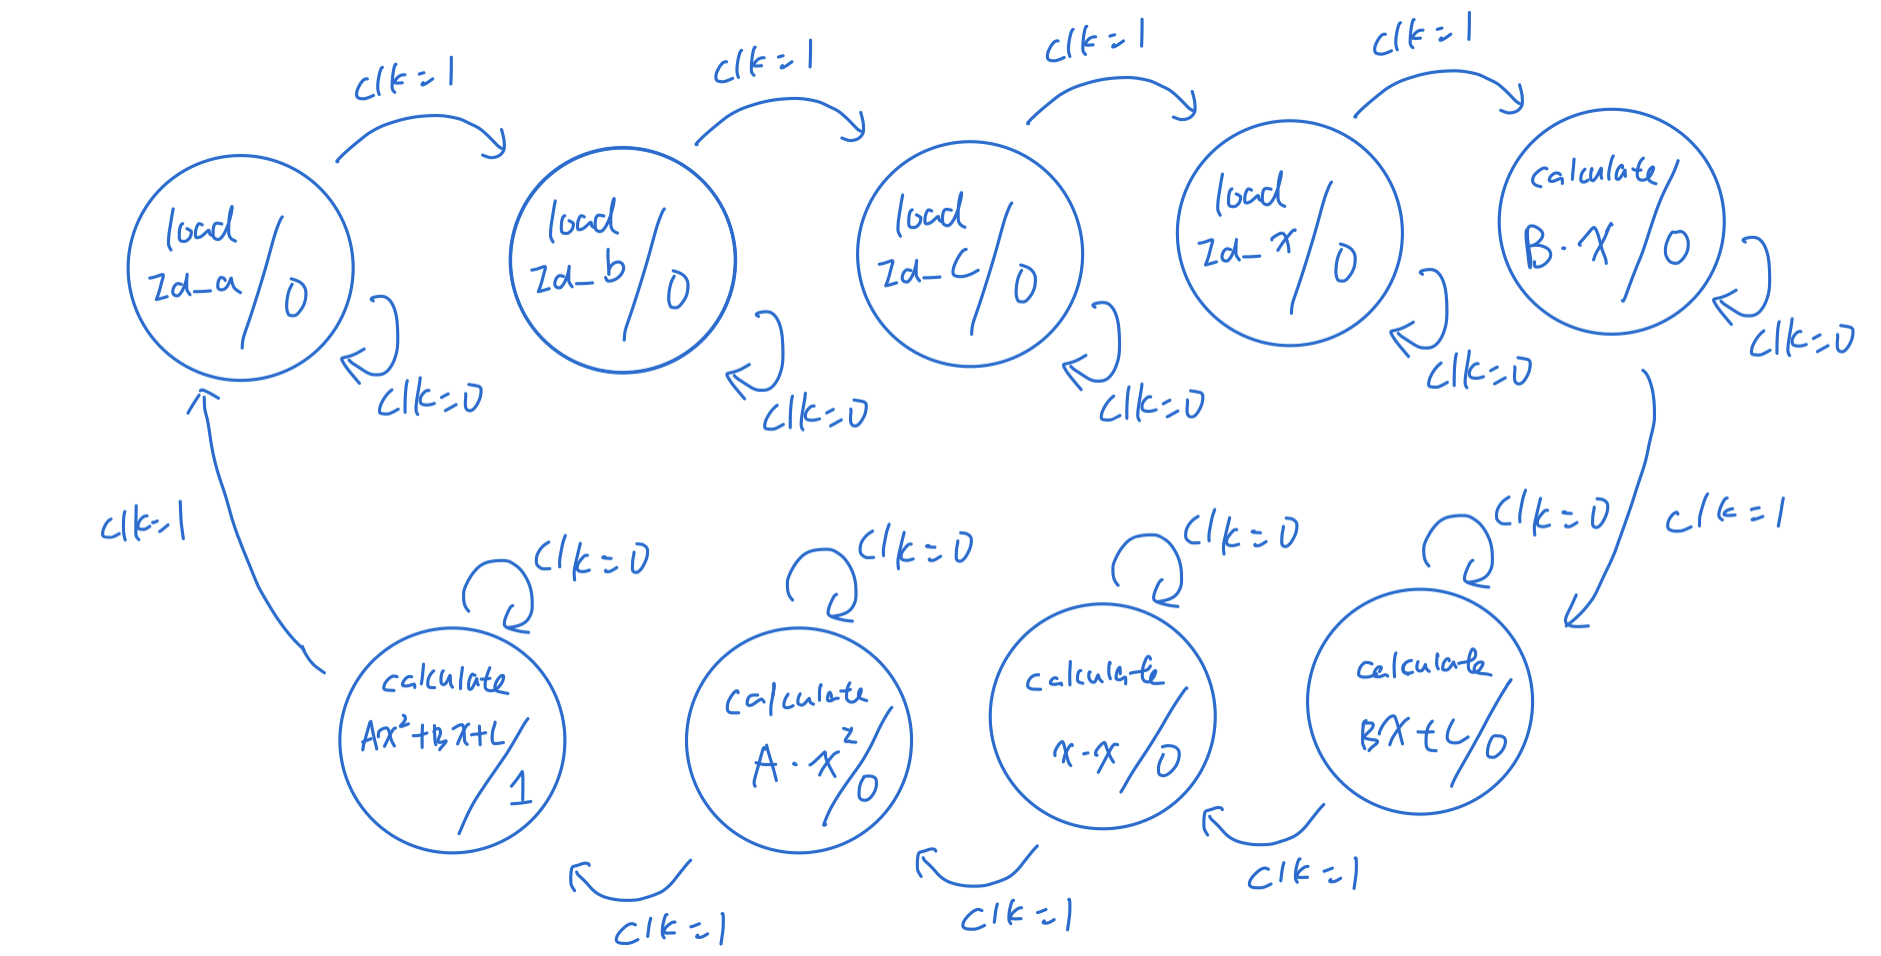 clk=1
clk=1
clk=1
clk=1
load
ld_a / 0
load
ld_b / 0
load
ld_c / 0
load
ld_x / 0
calculate
B·X / 0
clk=0
clk=0
clk=0
clk=0
clk=0
clk=1
clk=1
clk=0
clk=0
clk=0
clk=0
calculate
Ax²+Bx+C / 1
calculate
A·x² / 0
calculate
x·x / 0
calculate
BX+C / 0
clk=1
clk=1
clk=1